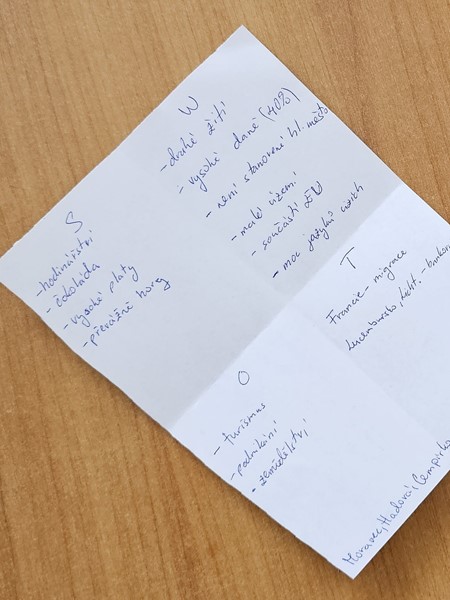 S
-hodinářství
- čokoláda
- vysoké platy
- převážně hory
W
- drahé žití
- vysoké daně (40%)
- není stanovené hl. město
- malé území
- součástí
- moc jazyků
O
- turismus
- podnikání
- zemědělství
T
Francie - migrace
Lucembursko, Licht. - bankov
Moravec, Hadová, Cempírk